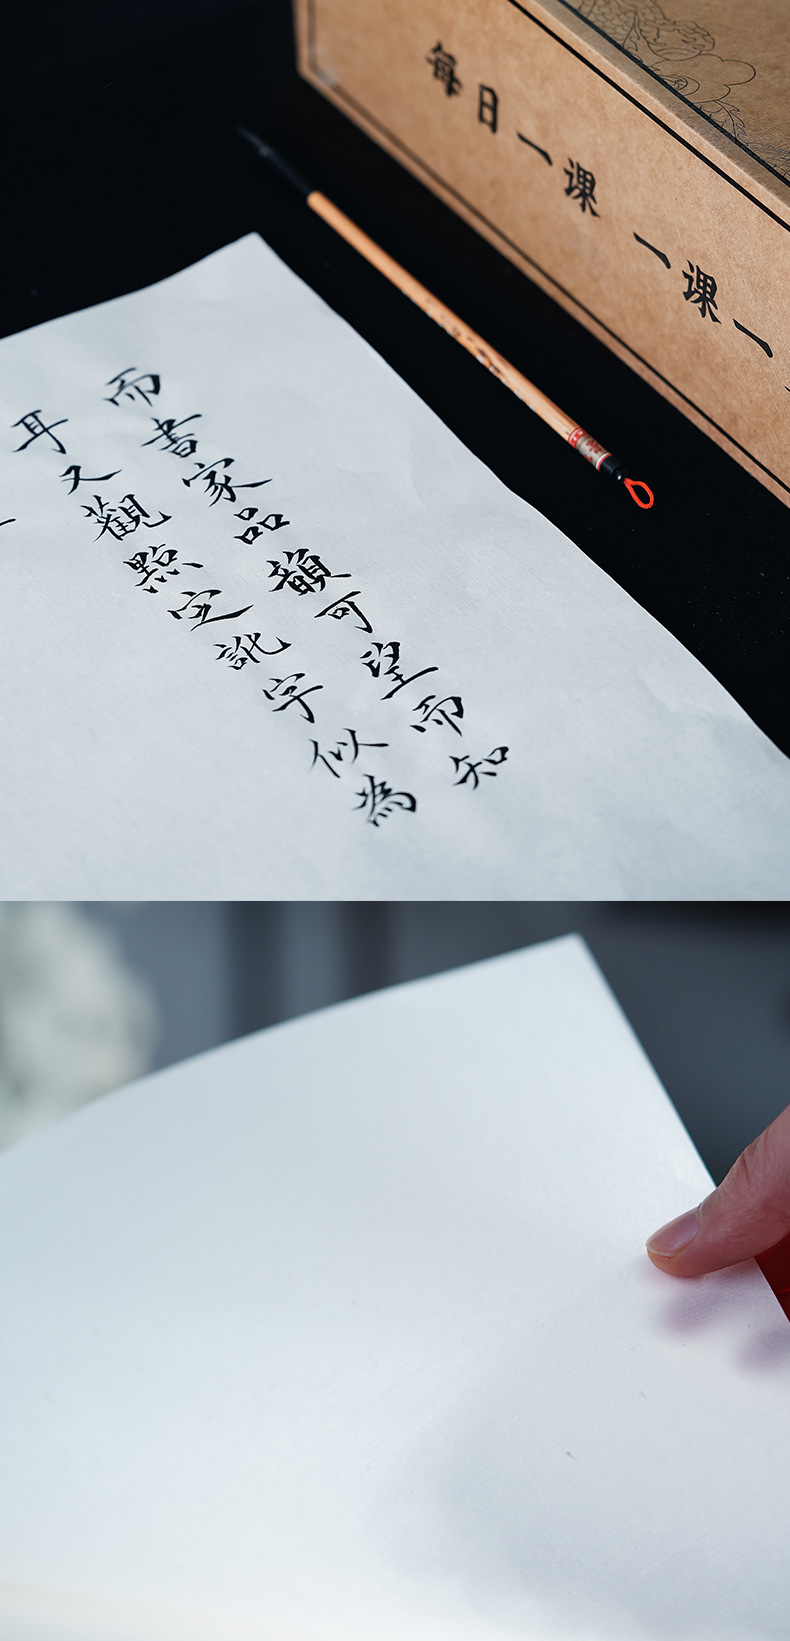 每日一课 一课一
而書家品韻可望而知
耳又觀點定訛字似為